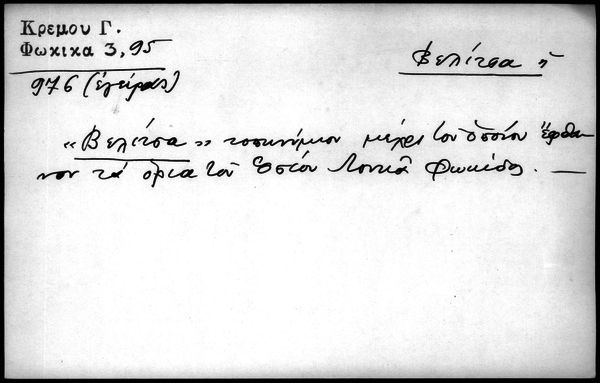 Κρεμου Γ.
Φωκικα 3, 95
Βελίτσα ἡ
976 (ἐγείρας)
«Βελίτσα» τοπωνύμιον μέχρι τοῦ ὁποίου ἔφθα
νον τά ὅρια τοῦ Ὁσίου Λουκᾶ Φωκίδος. —